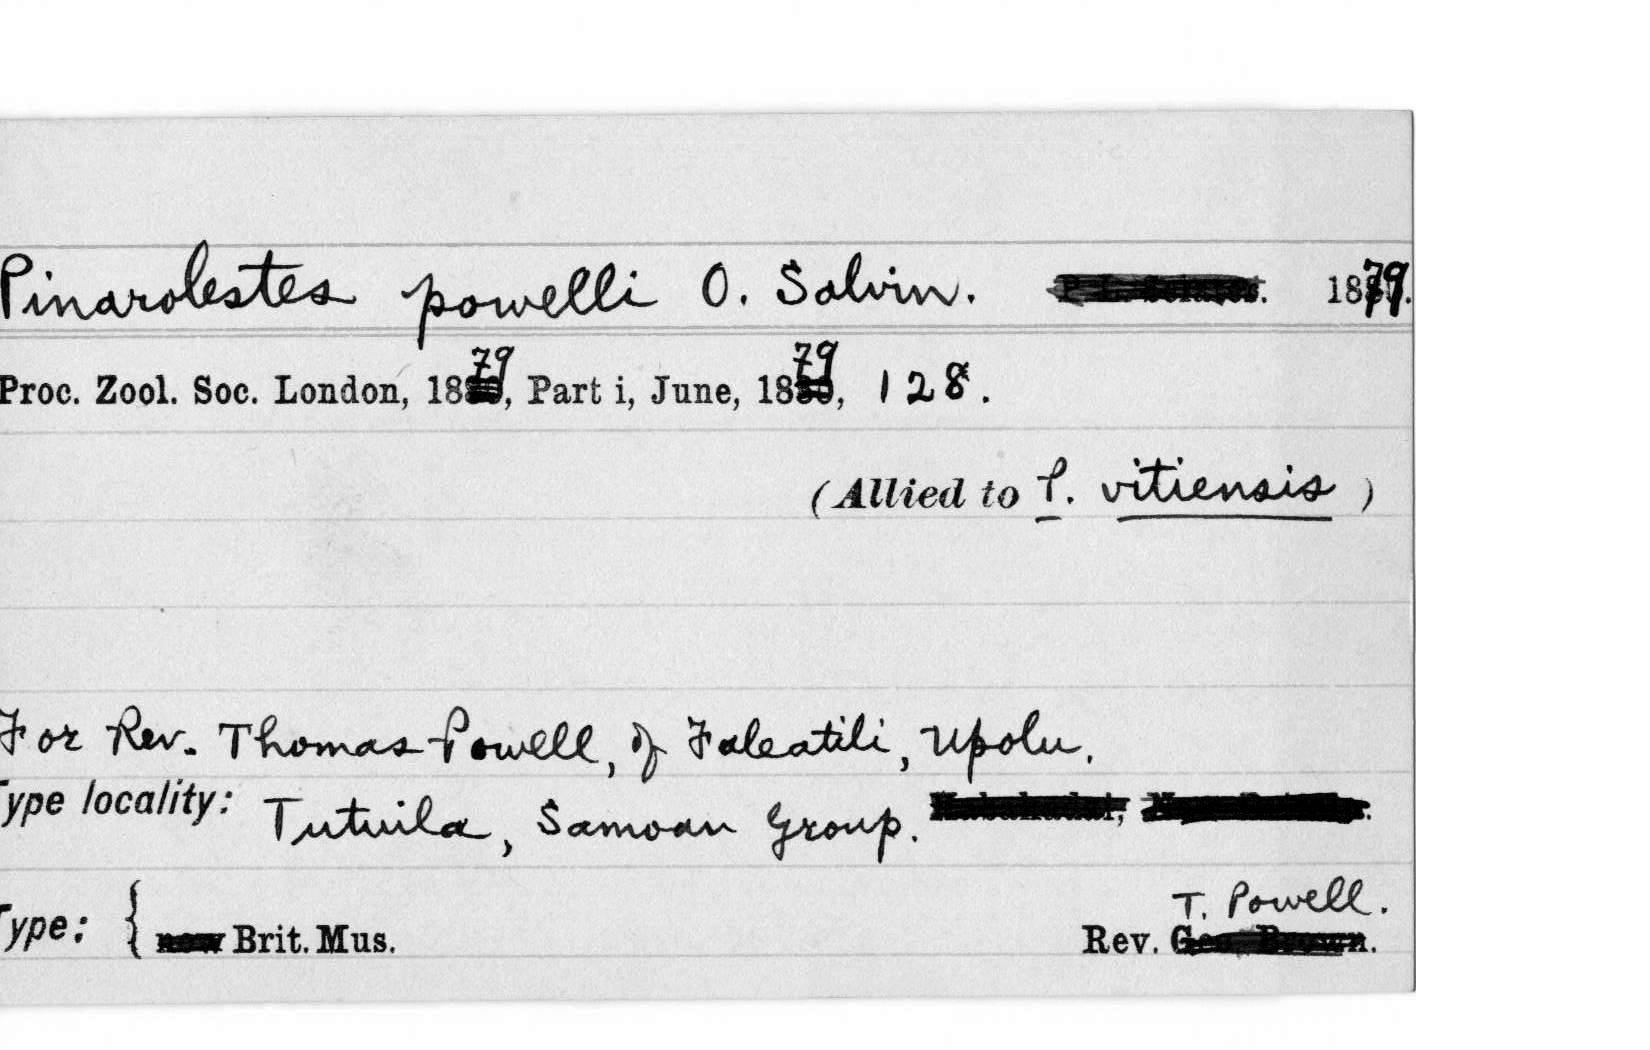 Pinarolestes powelli O. Salvin. 1879.
Proc. Zool. Soc. London, 1879, Part i, June, 1879, 128.
(Allied to P. vitiensis)
For Rev. Thomas Powell, of Faleatili, Upolu.
Type locality: Tutuila, Samoan Group.
T. Powell.
Type: { now Brit. Mus. Rev. Geo. Brown.